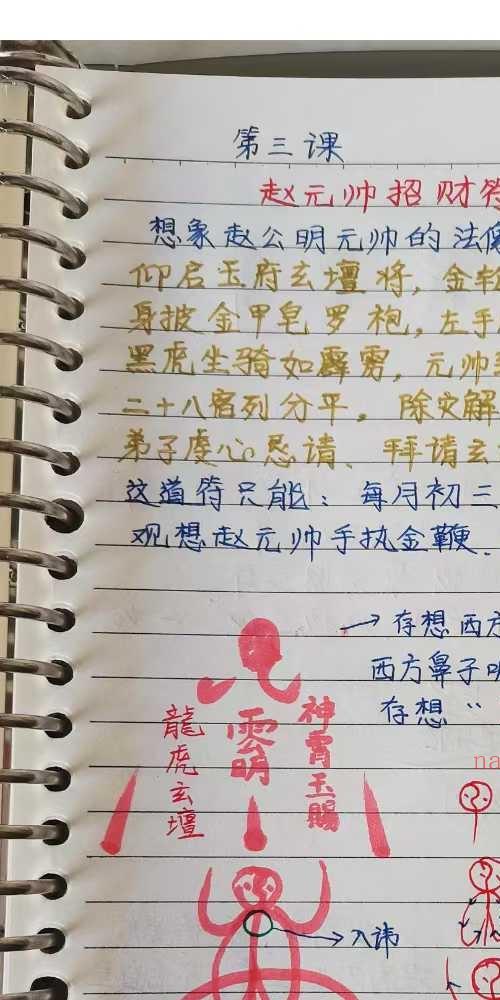 第三课
赵元帅招财符
想象赵公明元帅的法像
仰启玉府玄壇将，金轮
身披金甲皂罗袍，左手
黑虎坐骑如霹雳，元帅
二十八宿列分平，除灾解
弟子虔心恳请、拜请玄
这道符只能：每月初三
观想赵元帅手执金鞭.
→存想西方
西方鼻子吸
存想〃
神霄玉賜
龍虎玄壇
入讳
na